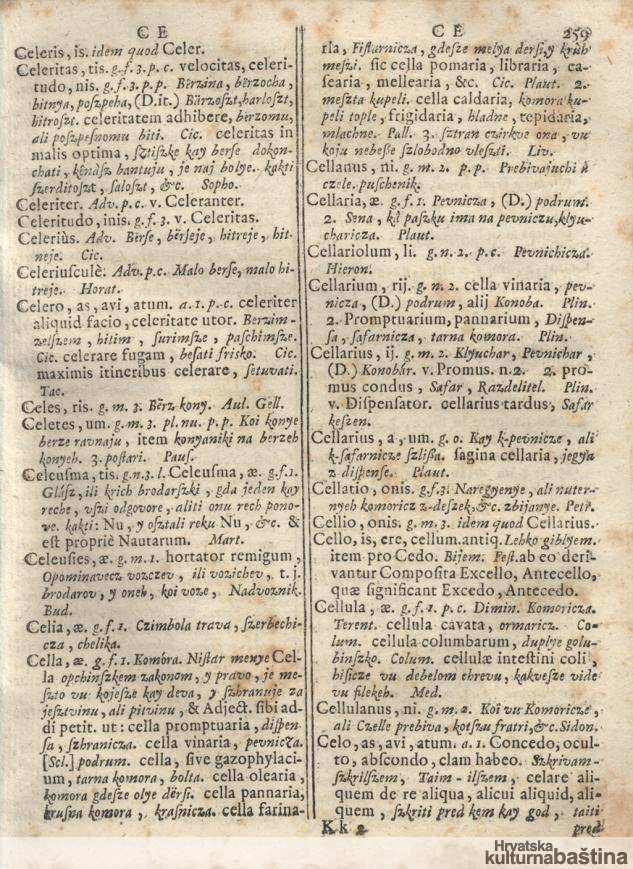 C E
Celeris, is. idem quod Celer.
Celeritas, tis. g. f. 3. p. c. velocitas, celeri-
tudo, nis. g. f. 3. p. p. Bërzina, bërzocha,
bitnya, poszpeha, (D. it.) Bärzoszt, harloszt,
bitroszt. celeritatem adhibere, bërzomu,
ali poszpesnomu biti. Cic. celeritas in
malis optima, sztiszke kay berse dokon-
chati, këndsz bantuju, je naj bolye. kakti
szerditoszt, saloszt, &c. Sopho.
Celeriter. Adv. p. c. v. Celeranter.
Celeritudo, inis. g. f. 3. v. Celeritas.
Celeriùs. Adv. Bërse, bërseje, hitreje, hit-
neje. Cic.
Celeriusculè. Adv. p. c. Malo berse, malo hi-
treje. Horat.
Celero, as, avi, atum. a. 1. p. c. celeriter
aliquid facio, celeritate utor. Berzim-
zelszem, hitim, surimsze, paschimsze.
Cic. celerare fugam, besati frisko. Cic.
maximis itineribus celerare, setuvati.
Tac.
Celes, ris. g. m. 3. Bërz kony. Aul. Gell.
Celetes, um. g. m. 3. pl. nu. p. p. Koi konye
berze ravnaju, item konyaniki na berzeh
konyeh. 3. postari. Paus.
Celeusma, tis. g. n. 3. l. Celeusma, æ. g. f. 1.
Glász, ili krich brodarszki, gda jeden kay
reche, vszi odgovore, aliti onu rech pono-
ve. kakti: Nu, y osztali reku Nu, &c. &
est propriè Nautarum. Mart.
Celeusies, æ. g. m. 1. hortator remigum,
Opominavecz vozczev, ili vozichev, t. j.
brodarov, y oneh, koi voze, Nadvoznik.
Bud.
Celia, æ. g. f. 1. Czimbola trava, szerbechi-
cza, chelika.
Cella, æ. g. f. 1. Komóra. Nistar menye Cel-
la opchinszkem zakonom, y pravo, je me-
szto vu kojesze kay deva, y szhranuje za
jesztvinu, ali pitvinu, & Adject. sibi ad-
di petit. ut: cella promptuaria, dispen-
sa, szhranicza. cella vinaria, pevnicza.
[Scl.] podrum. cella, sive gazophylaci-
um, tarna komora, bolta. cella olearia,
komora gdesze olye dërsi. cella pannaria,
krusna komora, krasnicza. cella farina-
C E 259
ria, Fistarnicza, gdesze melya dersi, y krùh
meszi. sic cella pomaria, libraria, ca-
searia, mellearia, &c. Cic. Plaut. 2.
meszta kupeli. cella caldaria, komora ku-
peli tople, frigidaria, hladne, tepidaria,
mlachne. Pall. 3. sztran czirkve ona, vu
koju nebesse szlobodno vleszti. Liv.
Cellanus, ni. g. m. 2. p. p. Prebivajuchi è
czele. puschenik.
Cellaria, æ. g. f. 1. Pevnicza, (D.) podrum.
2. Sena, kâ paszku ima na pevniczu, klyu-
charicza. Plaut.
Cellariolum, li. g. n. 2. p. c. Pevnichicza.
Hieron.
Cellarium, rij. g. n. 2. cella vinaria, pev-
nicza, (D.) podrum, alij Konoba. Plin.
2. Promptuarium, pannarium, Dispen-
sa, safarnicza, tarna komora. Plin.
Cellarius, ij. g. m. 2. Klyuchar, Pevnichar,
(D.) Konobár. v. Promus. n. 2. 2. pro-
mus condus, Safar, Razdelitel. Plin.
v. Dispensator. cellarius tardus, Safar
keszen.
Cellarius, a, um. g. o. Kay k-pevnicze, ali
k-safarnicze szlissa. sagina cellaria, jegya
z dispense. Plaut.
Cellatio, onis. g. f. 3. Naregyenye, ali nuter-
nyeh komoricz z-deszek, &c. zbijanye. Petr.
Cellio, onis. g. m. 3. idem quod Cellarius.
Cello, is, ere, cellum. antiq. Lehko giblyem.
item pro Cedo. Bijem. Fest. ab eo deri-
vantur Composita Excello, Antecello,
quæ significant Excedo, Antecedo.
Cellula, æ. g. f. 1. p. c. Dimin. Komoricza.
Terent. cellula cavata, ormaricz. Co-
lum. cellula columbarum, duplye golu-
binszko. Colum. cellulæ intestini coli,
hisicze vu debelom chrevu, kakvesze vide
vu filekeh. Med.
Cellulanus, ni. g. m. 2. Koi vu Komoricze,
ali Czelle prebiva, kotszu fratri, &c. Sidon.
Celo, as, avi, atum. a. 1. Concedo, ocul-
to, abscondo, clam habeo. Szkrivam-
szkrilszem, Taim-ilszem, celare ali-
quem de re aliqua, alicui aliquid, ali-
quem, szkriti pred kem kay god, taiti
K k 2 pred
Hrvatska
kulturnabaština